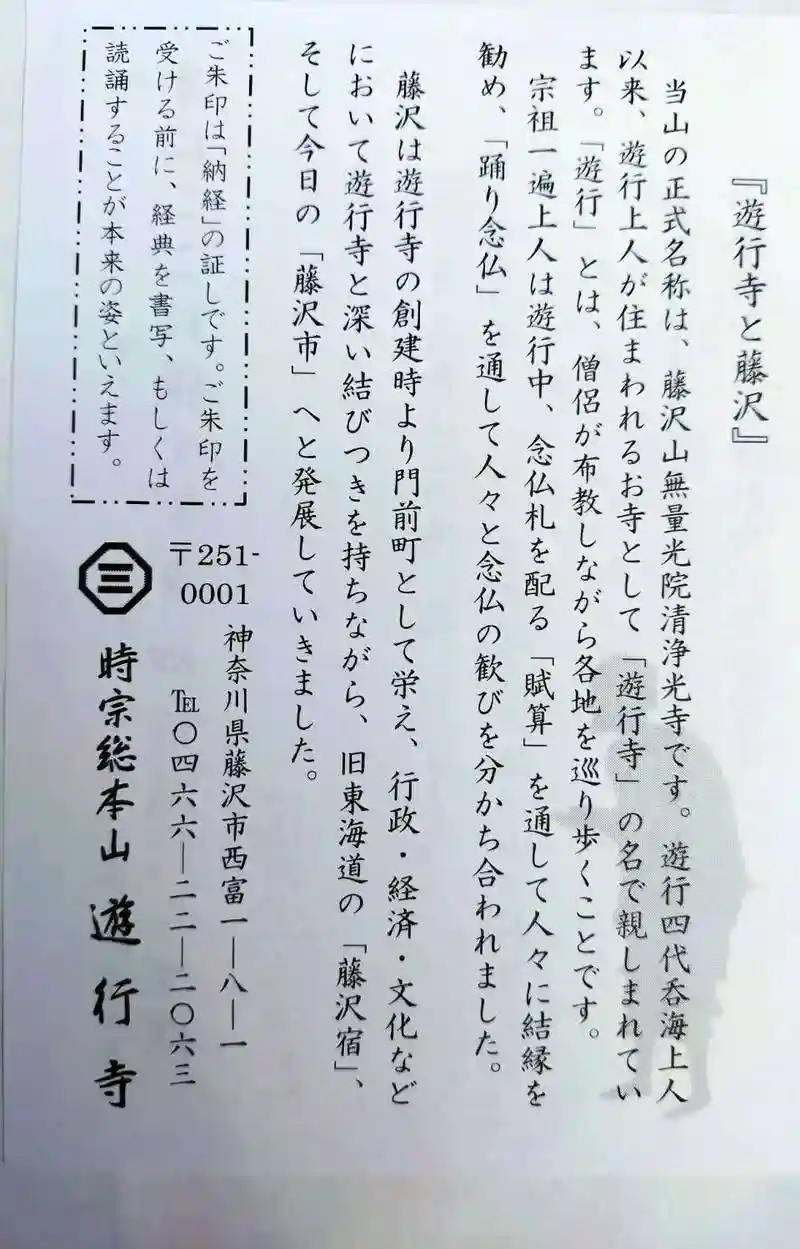 『遊行寺と藤沢』
当山の正式名称は、藤沢山無量光院清浄光寺です。遊行四代呑海上人
以来、遊行上人が住まわれるお寺として「遊行寺」の名で親しまれてい
ます。「遊行」とは、僧侶が布教しながら各地を巡り歩くことです。
宗祖一遍上人は遊行中、念仏札を配る「賦算」を通して人々に結縁を
勧め、「踊り念仏」を通して人々と念仏の歓びを分かち合われました。
藤沢は遊行寺の創建時より門前町として栄え、行政・経済・文化など
において遊行寺と深い結びつきを持ちながら、旧東海道の「藤沢宿」、
そして今日の「藤沢市」へと発展していきました。
ご朱印は「納経」の証しです。ご朱印を
受ける前に、経典を書写、もしくは
読誦することが本来の姿といえます。
〒251-
0001
神奈川県藤沢市西富一―八―一
℡〇四六六―二二―二〇六三
三
時宗総本山 遊行寺